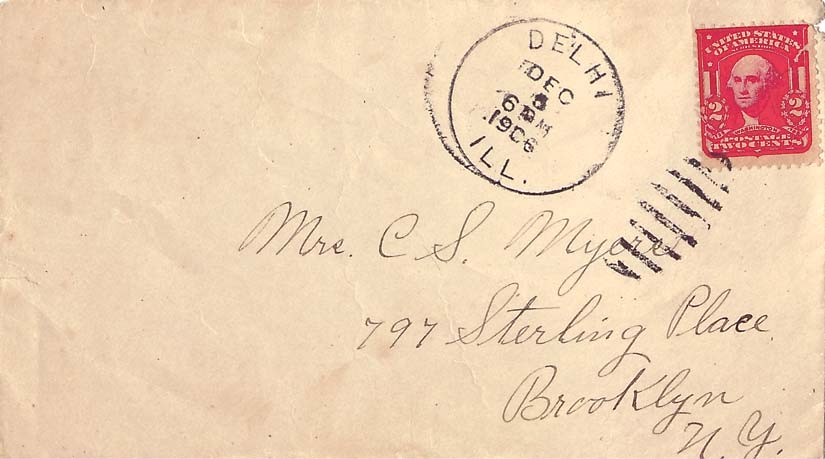 DELHI
DEC
6 PM
1906
ILL.
UNITED STATES
OF AMERICA
2 2
WASHINGTON
POSTAGE
TWO CENTS
Mrs. C. S. Myers
797 Sterling Place
Brooklyn
N. Y.